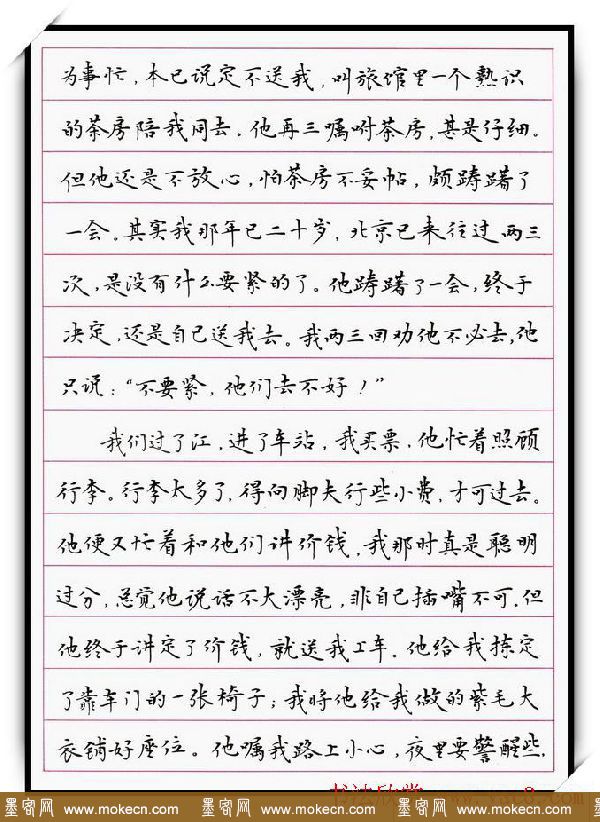 为事忙，本已说定不送我，叫旅馆里一个熟识
的茶房陪我同去。他再三嘱咐茶房，甚是仔细。
但他还是不放心，怕茶房不妥帖，颇踌躇了
一会。其实我那年已二十岁，北京已来往过两三
次，是没有什么要紧的了。他踌躇了一会，终于
决定，还是自己送我去。我两三回劝他不必去，他
只说：“不要紧，他们去不好！”
我们过了江，进了车站，我买票，他忙着照顾
行李。行李太多了，得向脚夫行些小费，才可过去。
他便又忙着和他们讲价钱，我那时真是聪明
过分，总觉他说话不大漂亮，非自己插嘴不可。但
他终于讲定了价钱，就送我上车。他给我拣定
了靠车门的一张椅子；我将他给我做的紫毛大
衣铺好座位。他嘱我路上小心，夜里要警醒些，
书法欣赏
墨客网 www.mokecn.com 墨客网 www.mokecn.com 墨客网 www.mokecn.com